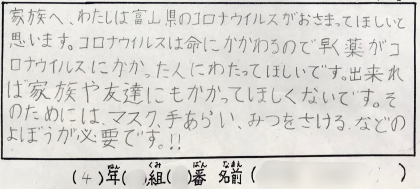 家族へ、わたしは富山県のコロナウイルスがおさまってほしいと
思います。コロナウイルスは命にかかわるので早く薬がコ
ロナウイルスにかかった人にわたってほしいです。出来れ
ば家族や友達にもかかってほしくないです。そ
のためには、マスク、手あらい、みつをさける、などの
よぼうが必要です。!!
(4)年( )組( )番 名前( )